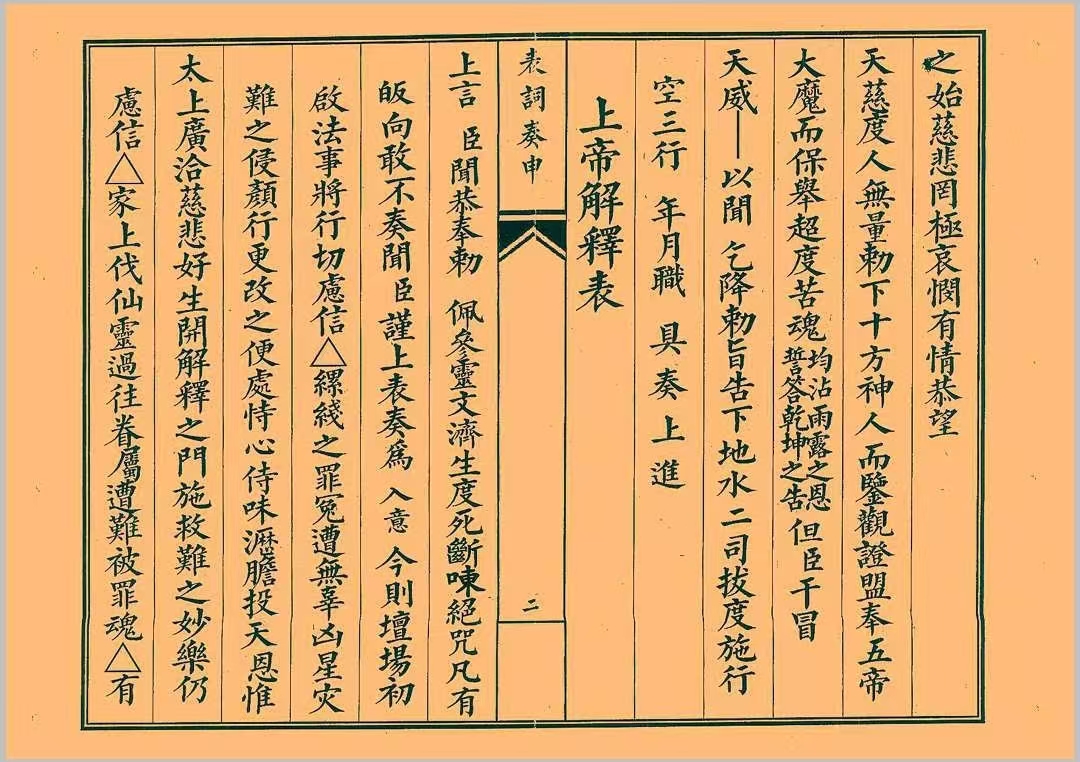 之始慈悲罔極哀憫有情恭望
天慈度人無量勅下十方神人而鑒觀證盟奉五帝
大魔而保舉超度苦魂均沾雨露之恩誓答乾坤之吿但臣干冒
天威——以聞 乞降勅旨吿下地水二司拔度施行
空三行 年月職 具奏上進
上帝解釋表
表詞奏申
二
上言 臣聞恭奉勅 佩參靈文濟生度死斷㖦絕咒凡有
皈向敢不奏聞臣謹上表奏爲 入意 今則壇場初
啟法事將行切慮信△縲綫之罪冤遭無辜凶星灾
難之侵顏行更改之便處恃心侍味瀝膽投天恩惟
太上廣洽慈悲好生開解釋之門施救難之妙樂仍
慮信△家上代仙靈過往眷屬遭難被罪魂△有